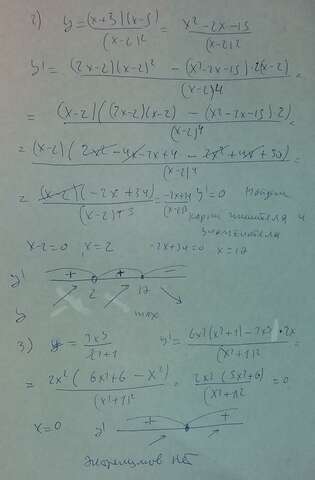 2) y = (x+3)(x-5) / (x-2)² = x²-2x-15 / (x-2)²
y' = (2x-2)(x-2)² - (x²-2x-15)·2(x-2) / (x-2)4 =
= (x-2)((2x-2)(x-2) - (x²-2x-15)2) / (x-2)4 =
= (x-2)(2x²-4x-2x+4-2x²+4x+30) / (x-2)4 =
= (x-2)(-2x+34) / (x-2)4 3 = -2x+34 / (x-2)3 y'=0 Найдем
корни числителя и
знаменателя
x-2=0, x=2 -2x+34=0 x=17
y' + + -
2 17
y max
3) y = 2x3 / x²+1 y' = 6x²(x²+1)-2x3·2x / (x²+1)² =
= 2x²(6x²+6-x²) / (x²+1)² = 2x²(5x²+6) / (x²+1)² = 0
x=0 y' + +
Экстремумов нет